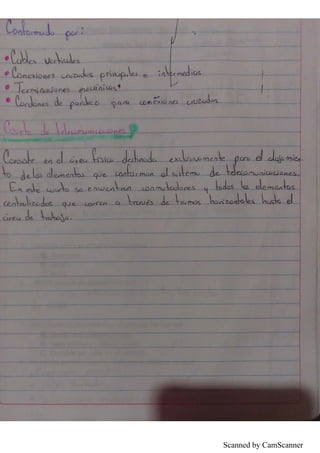 Conformado por:
• Cables verticales
• Conexiones cruzadas principales e intermedias
• Terminaciones mecánicas
• Cordones de parcheo para conexiones cruzadas
Cuarto de telecomunicaciones
Consiste en el área física destinada exclusivamente para el alojamien-
to de los elementos que conforman el sistema de telecomunicaciones.
En este cuarto se encuentran conmutadores y todos los elementos
centralizados que corren a través de tramos horizontales hasta el
área de trabajo.
Scanned by CamScanner